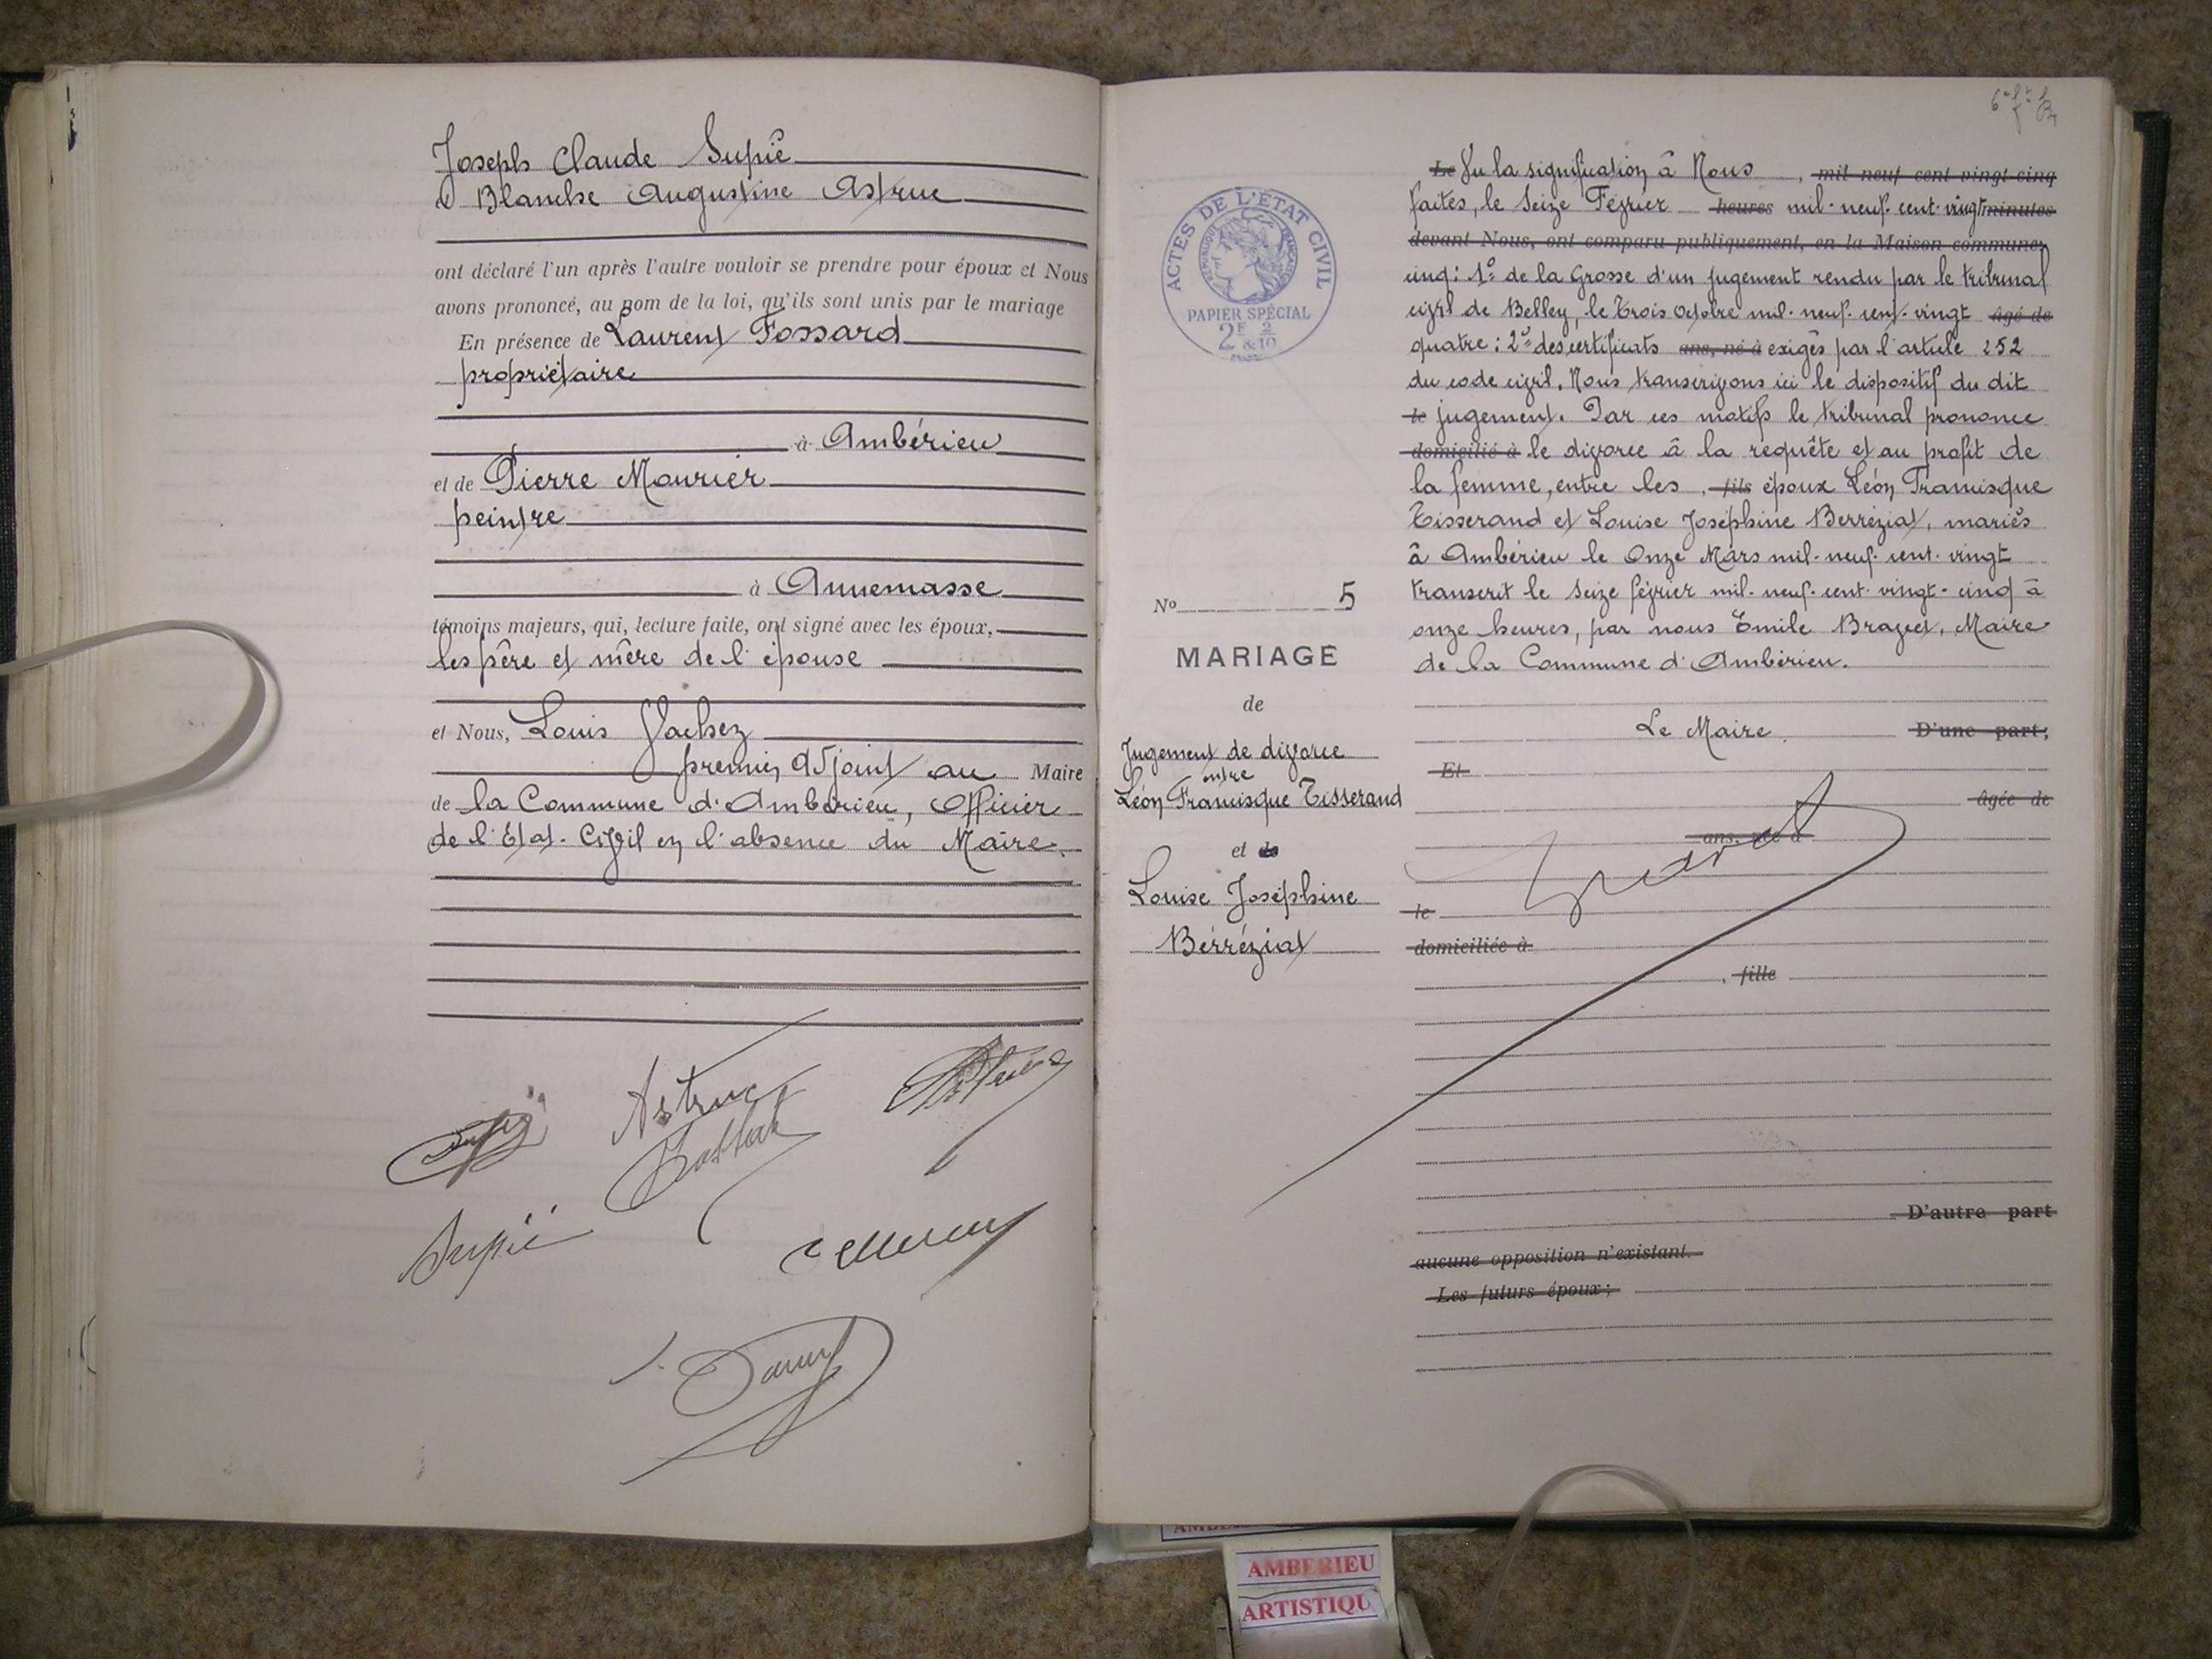 Joseph Claude Supié
& Blanche Augustine Astruc
ont déclaré l'un après l'autre vouloir se prendre pour époux et Nous
avons prononcé, au nom de la loi, qu'ils sont unis par le mariage
En présence de Laurent Fossard
propriétaire
à Ambérieu
et de Pierre Mourier
peintre
à Annemasse
témoins majeurs, qui, lecture faite, ont signé avec les époux,
les père et mère de l'épouse
et Nous, Louis Vachez
premier adjoint au Maire
de la Commune d'Ambérieu, Officier
de l'Etat-Civil en l'absence du Maire.
Astruc
Supié
ACTES DE L'ÉTAT CIVIL
RÉPUBLIQUE FRANÇAISE
PAPIER SPÉCIAL
2F 2
&10
No 5
MARIAGE
de
Jugement de divorce
entre
Léon Francisque Tisserand
et de
Louise Joséphine
Berréziat
Le Vu la signification à Nous , mil neuf cent vingt cinq
faites, le Seize Février heures mil-neuf-cent-vingt minutes
devant Nous, ont comparu publiquement, en la Maison commune:
cinq: 1º de la Grosse d'un jugement rendu par le tribunal
civil de Belley, le Trois Octobre mil-neuf-cent-vingt âgé de
quatre: 2º des certificats ans, né à exigés par l'article 252
du code civil. Nous transcrivons ici le dispositif du dit
le jugement. Par ces motifs le tribunal prononce
domicilié à le divorce à la requête et au profit de
la femme, entre les , fils époux Léon Francisque
Tisserand et Louise Joséphine Berréziat, mariés
à Ambérieu le Onze Mars mil-neuf-cent-vingt
transcrit le seize février mil-neuf-cent-vingt-cinq à
onze heures, par nous Emile Bravet, Maire
de la Commune d'Ambérieu.
Le Maire. D'une part;
Et
âgée de
ans, née à
le
domiciliée à
, fille
D'autre part
aucune opposition n'existant.
Les futurs époux:
AMBERIEU
ARTISTIQU